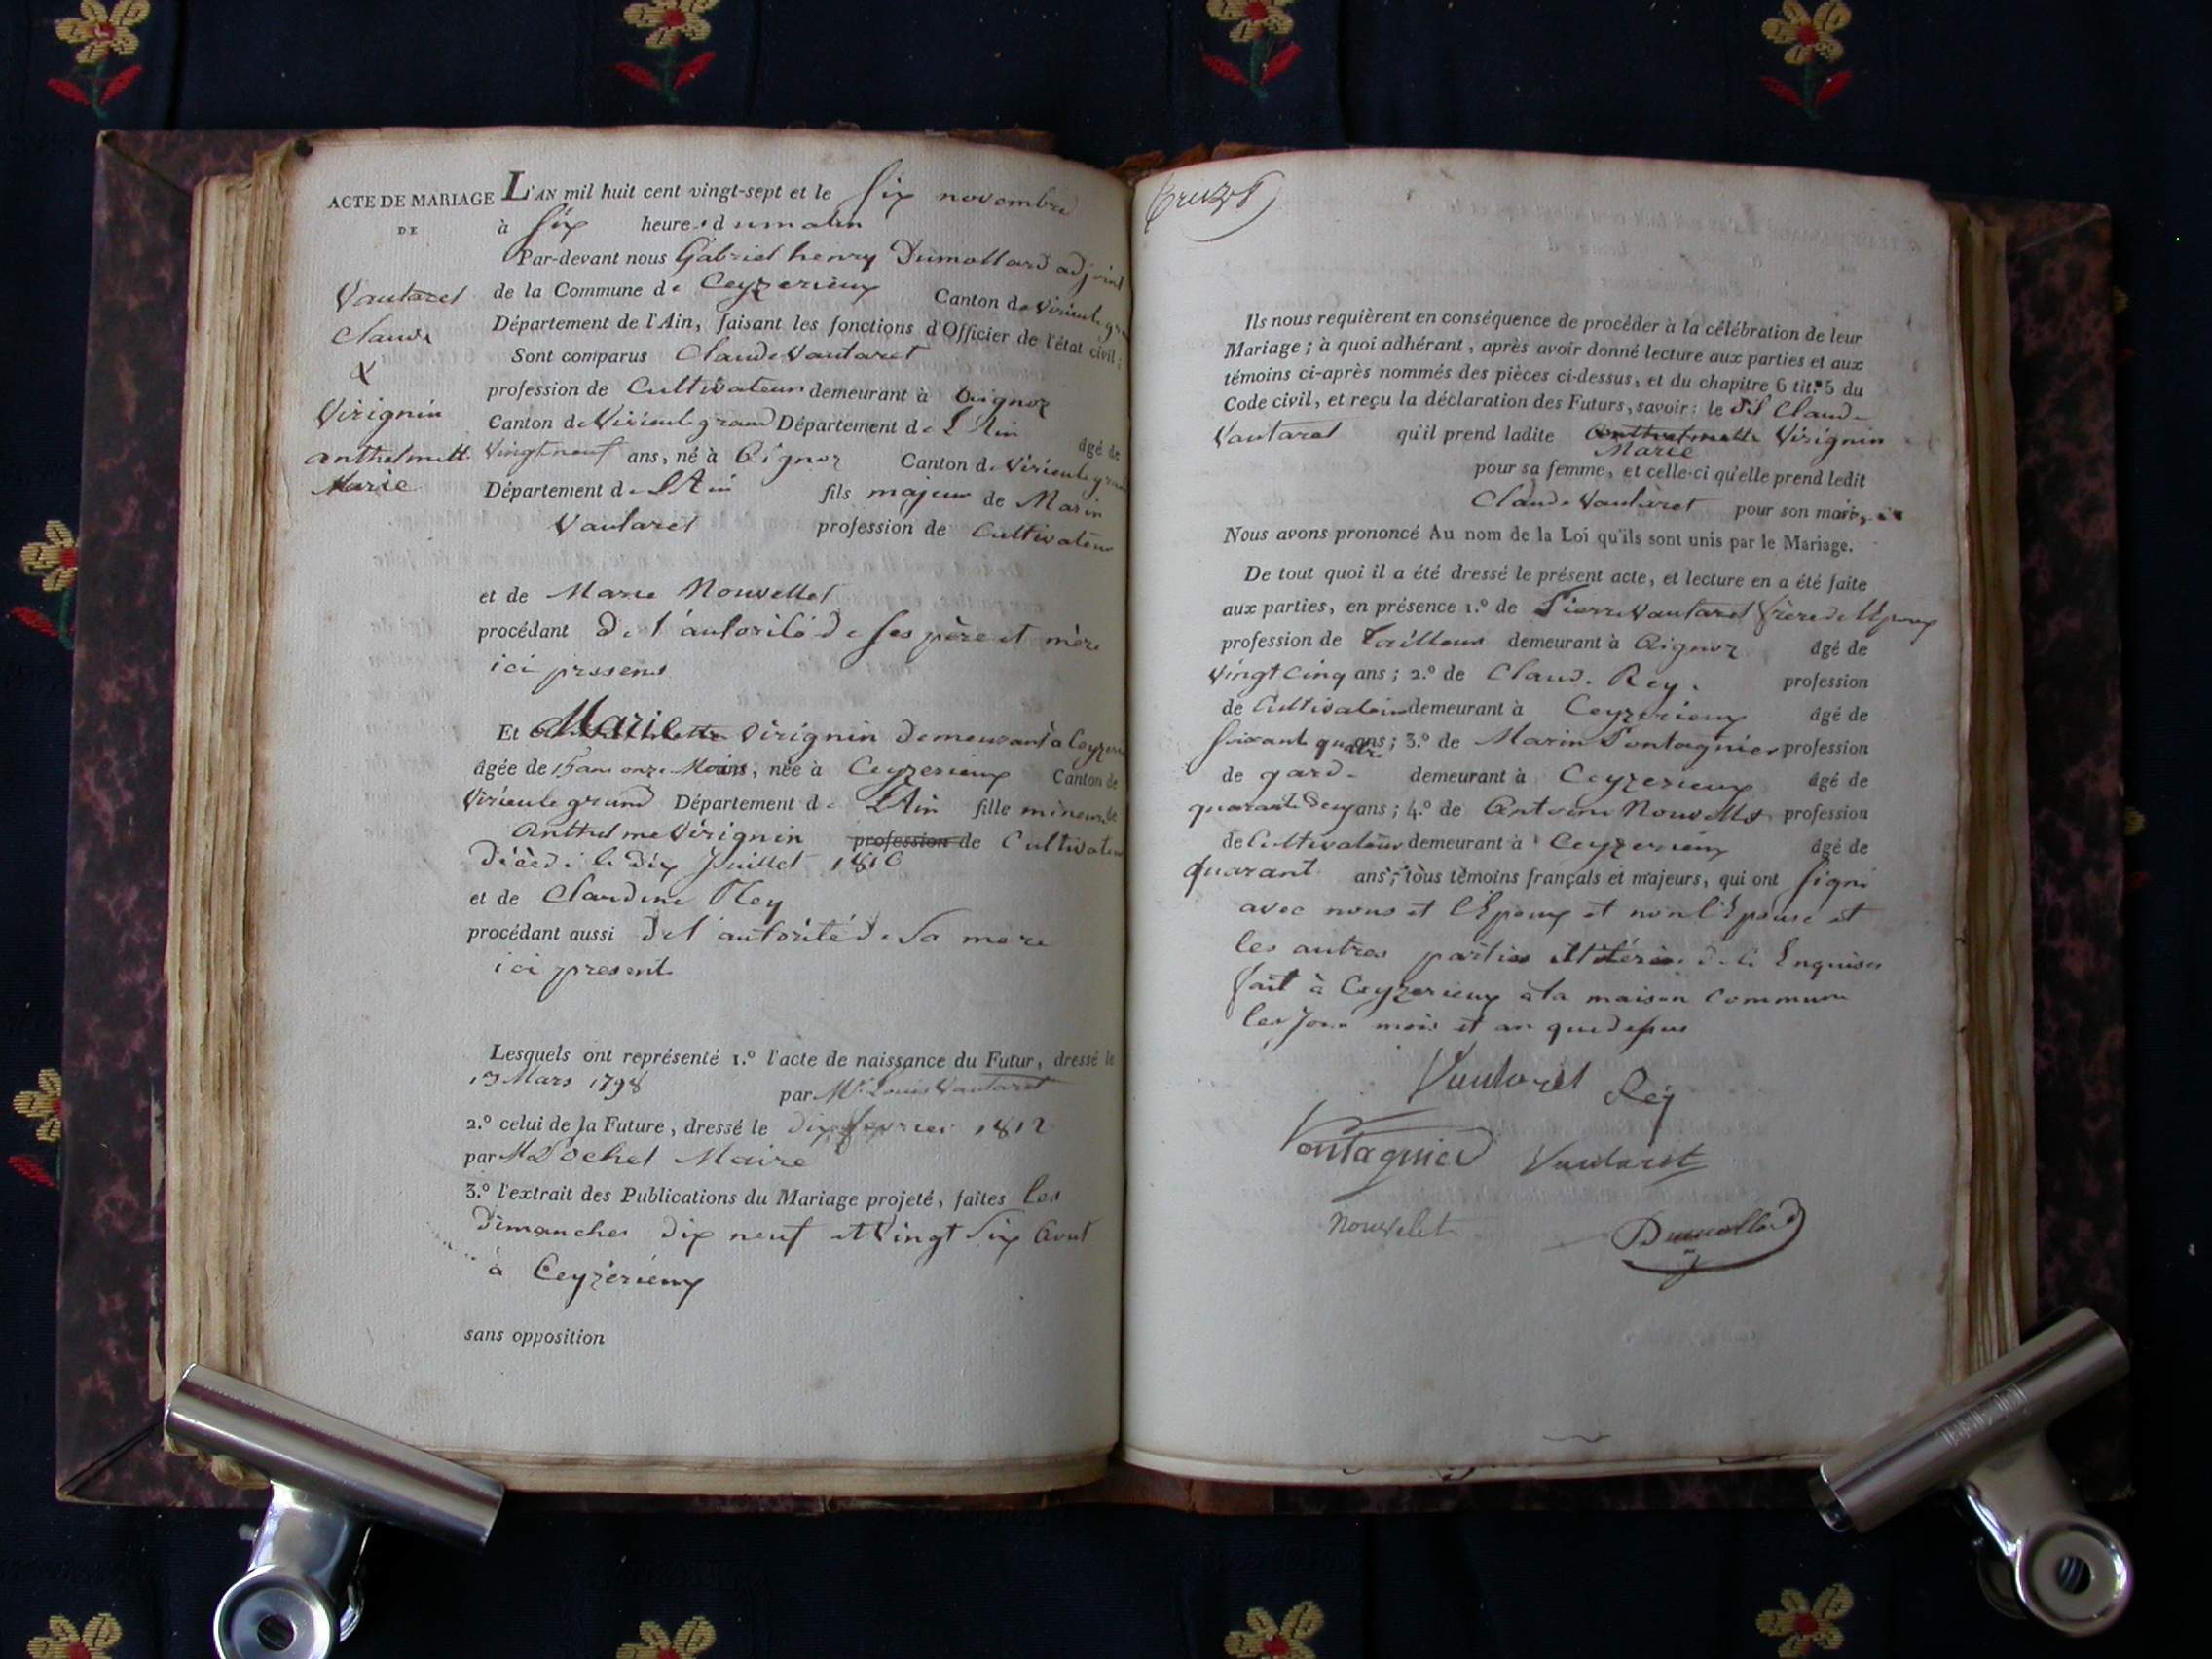 ACTE DE MARIAGE
DE
Vautaret
Claude
&
Virignin
anthelmette
Marie
L'AN mil huit cent vingt-sept et le six novembre
à six heures du matin
Par-devant nous Gabriel henry Dumollard adjoint
de la Commune de Ceyzerieux Canton de Virieu le grand
Département de l'Ain, faisant les fonctions d'Officier de l'état civil;
Sont comparus Claude Vautaret
profession de Cultivateur demeurant à Aignoz
Canton de Virieu le grand Département de L'Ain âgé de
Vingt neuf ans, né à Aignoz Canton de Virieu le grand
Département de L'Ain fils majeur de Marin
Vautaret profession de Cultivateur
et de Marie Nouvellet
procédant de l'autorité de ses père et mère
ici presens
Et Marie Virignin demeurant à Ceyzerieux
âgée de 15 ans onze Mois, née à Ceyzerieux Canton de
Virieu le grand Département de L'Ain fille mineure de
Anthelme Virignin profession de Cultivateur
Décédé le dix Juillet
et de Claudine Rey
procédant aussi de l'autorité de Sa mere
ici present
Lesquels ont représenté 1.º l'acte de naissance du Futur, dressé le
Mars 1798 par Mr Louis Vautaret
2.º celui de la Future, dressé le dix fevrier 1812
par M Pochet Maire
3.º l'extrait des Publications du Mariage projeté, faites les
Dimanches dix neuf et Vingt Six Aout
à Ceyzérieux
sans opposition
Ils nous requièrent en conséquence de procéder à la célébration de leur
Mariage; à quoi adhérant, après avoir donné lecture aux parties et aux
témoins ci-après nommés des pièces ci-dessus, et du chapitre 6 tit.º 5 du
Code civil, et reçu la déclaration des Futurs, savoir: le dt Claude
Vautaret qu'il prend ladite anthelmette Virignin
Marie
pour sa femme, et celle-ci qu'elle prend ledit
Claude Vautaret pour son mari,
Nous avons prononcé Au nom de la Loi qu'ils sont unis par le Mariage.
De tout quoi il a été dressé le présent acte, et lecture en a été faite
aux parties, en présence 1.º de Pierre Vautaret frere de l'Epoux
profession de Tailleur demeurant à Aignoz âgé de
Vingt Cinq ans; 2.º de Claude Rey profession
de Cultivateur demeurant à Ceyzerieux âgé de
soixante quatre ans; 3.º de Marin Pontagnier profession
de garde demeurant à Ceyzerieux âgé de
quarante deux ans; 4.º de Antoine Nouvellet profession
de Cultivateur demeurant à Ceyzerieux âgé de
quarante ans; tous témoins français et majeurs, qui ont signé
avec nous et l'Epoux et non l'Epouse et
les autres parties illitérées de ce Enquises
fait à Ceyzerieux à la maison Commune
les Jour mois et an que dessus
Vautaret Rey
Pontagnier Vautaret
Nouvelet Dumollard